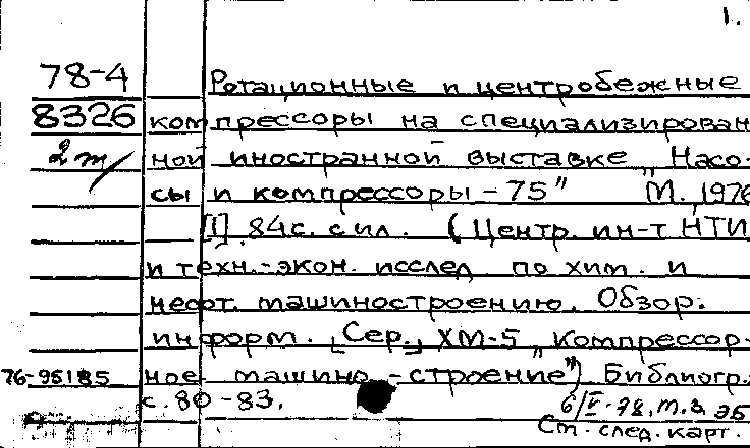 1.
78-4 Ротационные и центробежные
8326 компрессоры на специализирован
2 т/ ной иностранной выставке „Насо-
сы и компрессоры-75" М., 1976
[1], 84 с. с ил. (Центр. ин-т НТИ
и техн.-экон. исслед. по хим. и
нефт. машиностроению. Обзор.
информ. [Сер.] ХМ-5 „Компрессор-
76-95185 ное машино-строение") Библиогр.
с. 80-83.
Ст. след. карт.